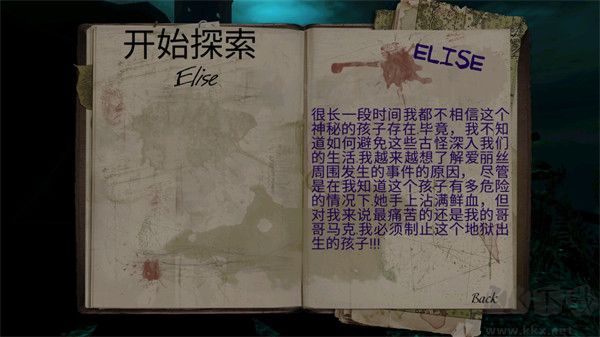 开始探索
Elise
ELISE
很长一段时间我都不相信这个
神秘的孩子存在.毕竟，我不知
道如何避免这些古怪深入我们
的生活.我越来越想了解爱丽丝
周围发生的事件的原因，尽管
是在我知道这个孩子有多危险
的情况下.她手上沾满鲜血，但
对我来说最痛苦的还是我的哥
哥马克.我必须制止这个地狱出
生的孩子!!!
Back
www.kkx.net